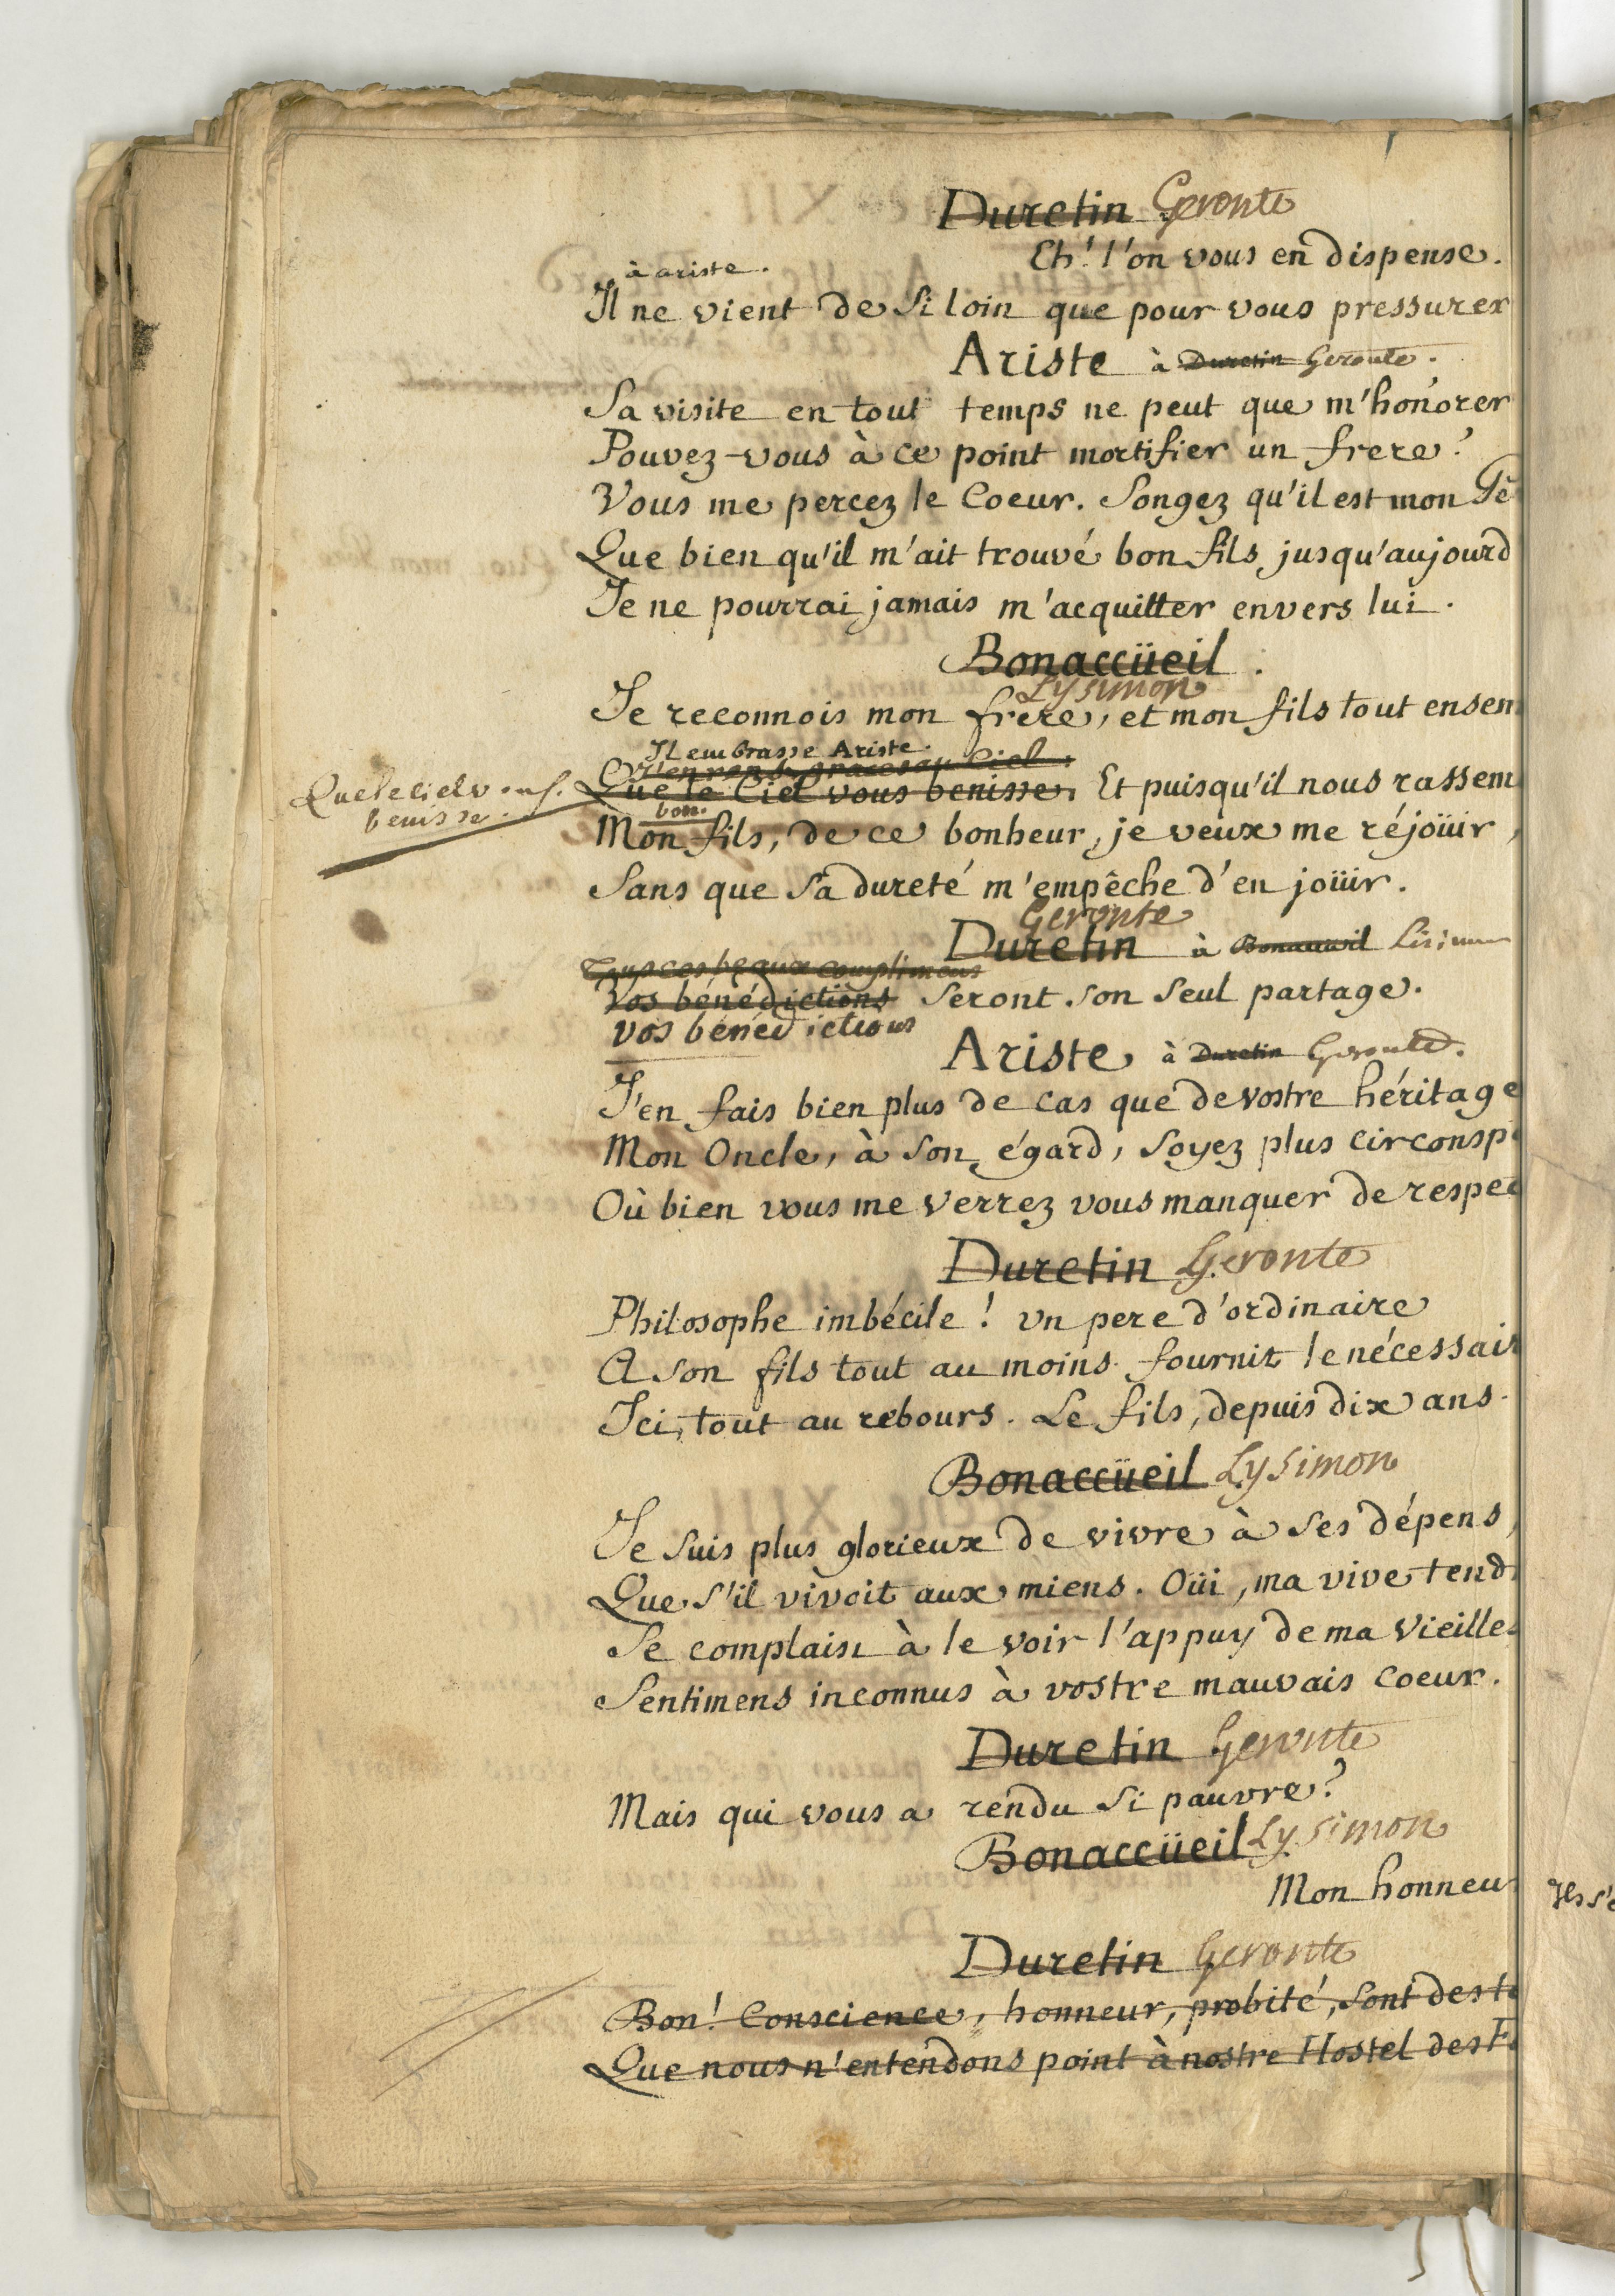 Duretin Geronte
Eh! l'on vous en dispense.
à ariste.
Il ne vient de si loin que pour vous pressurer
Ariste à Duretin Geronte.
Sa visite en tout temps ne peut que m'honorer
Pouvez-vous à ce point mortifier un frere?
Vous me percez le Coeur. Songez qu'il est mon Pé
Que bien qu'il m'ait trouvé bon fils jusqu'aujourd
Je ne pourrai jamais m'acquitter envers lui.
Bonaccüeil.
Lysimon
Je reconnois mon frere, et mon fils tout ensem
Il embrasse Ariste.
J'en rends graces au Ciel
Que le Ciel vous benisse. Et puisqu'il nous rassem
Que le ciel vous
benisse.
bon.
Mon fils, de ce bonheur, je veux me réjoüir,
Sans que sa dureté m'empêche d'en joüir.
Geronte
Duretin à Bonaccüeil Lisimon
Tous ces beaux complimens
Vos bénédictions seront son seul partage.
vos bénédictions
Ariste à Duretin Geronte.
J'en fais bien plus de cas que de vostre héritage
Mon Oncle, à son égard, soyez plus circonsp
Où bien vous me verrez vous manquer de respec
Duretin Geronte
Philosophe imbécile! Un pere d'ordinaire
A son fils tout au moins fournit le nécessair
Ici, tout au rebours. Le fils, depuis dix ans.
Bonaccüeil Lysimon
Je suis plus glorieux de vivre à ses dépens,
Que s'il vivoit aux miens. Oüi, ma vive tend
Se complaist à le voir l'appuy de ma vieilles
Sentimens inconnus à vostre mauvais coeur.
Duretin Geronte
Mais qui vous a rendu si pauvre?
Bonaccüeil Lysimon
Mon honneur
Ils s'e
Duretin Geronte
Bon! Conscience, honneur, probité, sont des te
Que nous n'entendons point à nostre Hostel des F